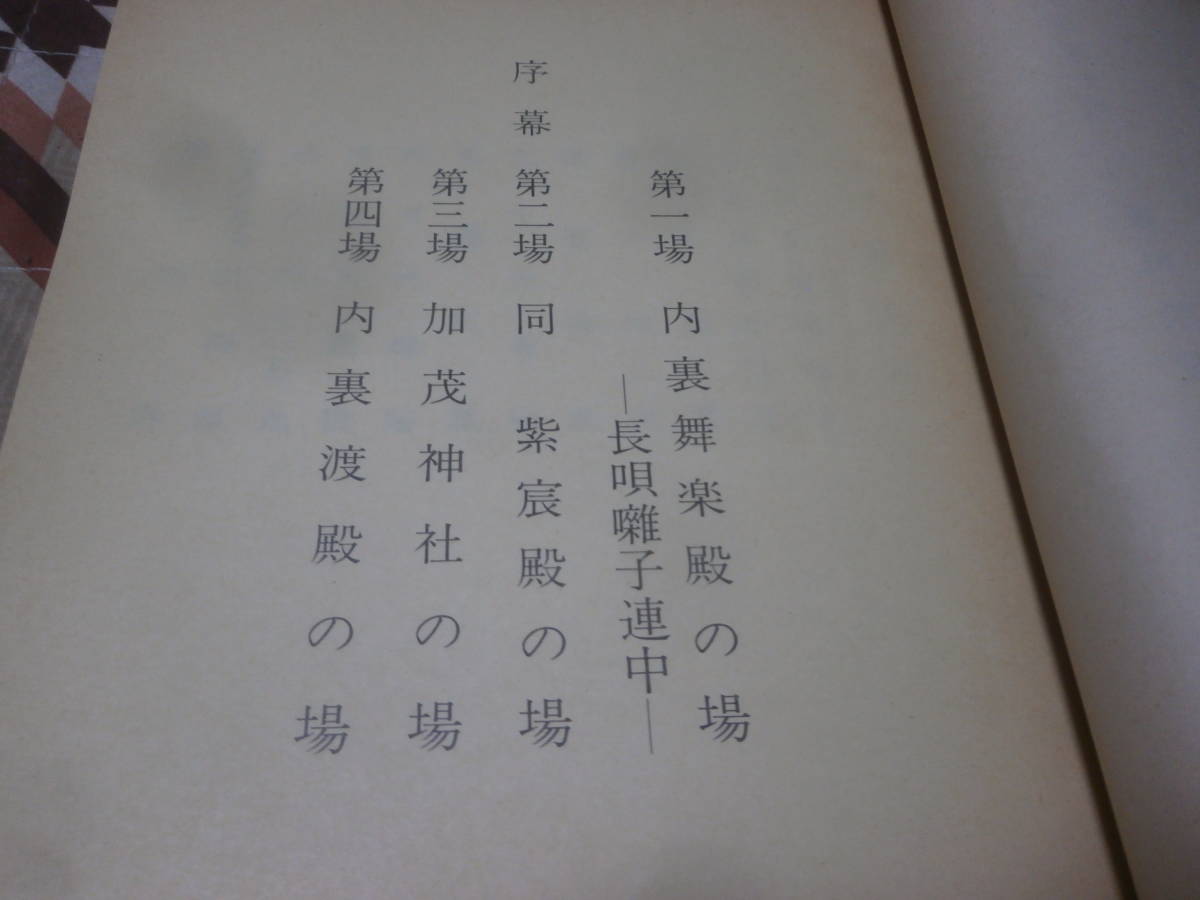 序幕
第一場 内裏舞楽殿の場
―長唄囃子連中―
第二場 同 紫宸殿の場
第三場 加茂神社の場
第四場 内裏渡殿の場